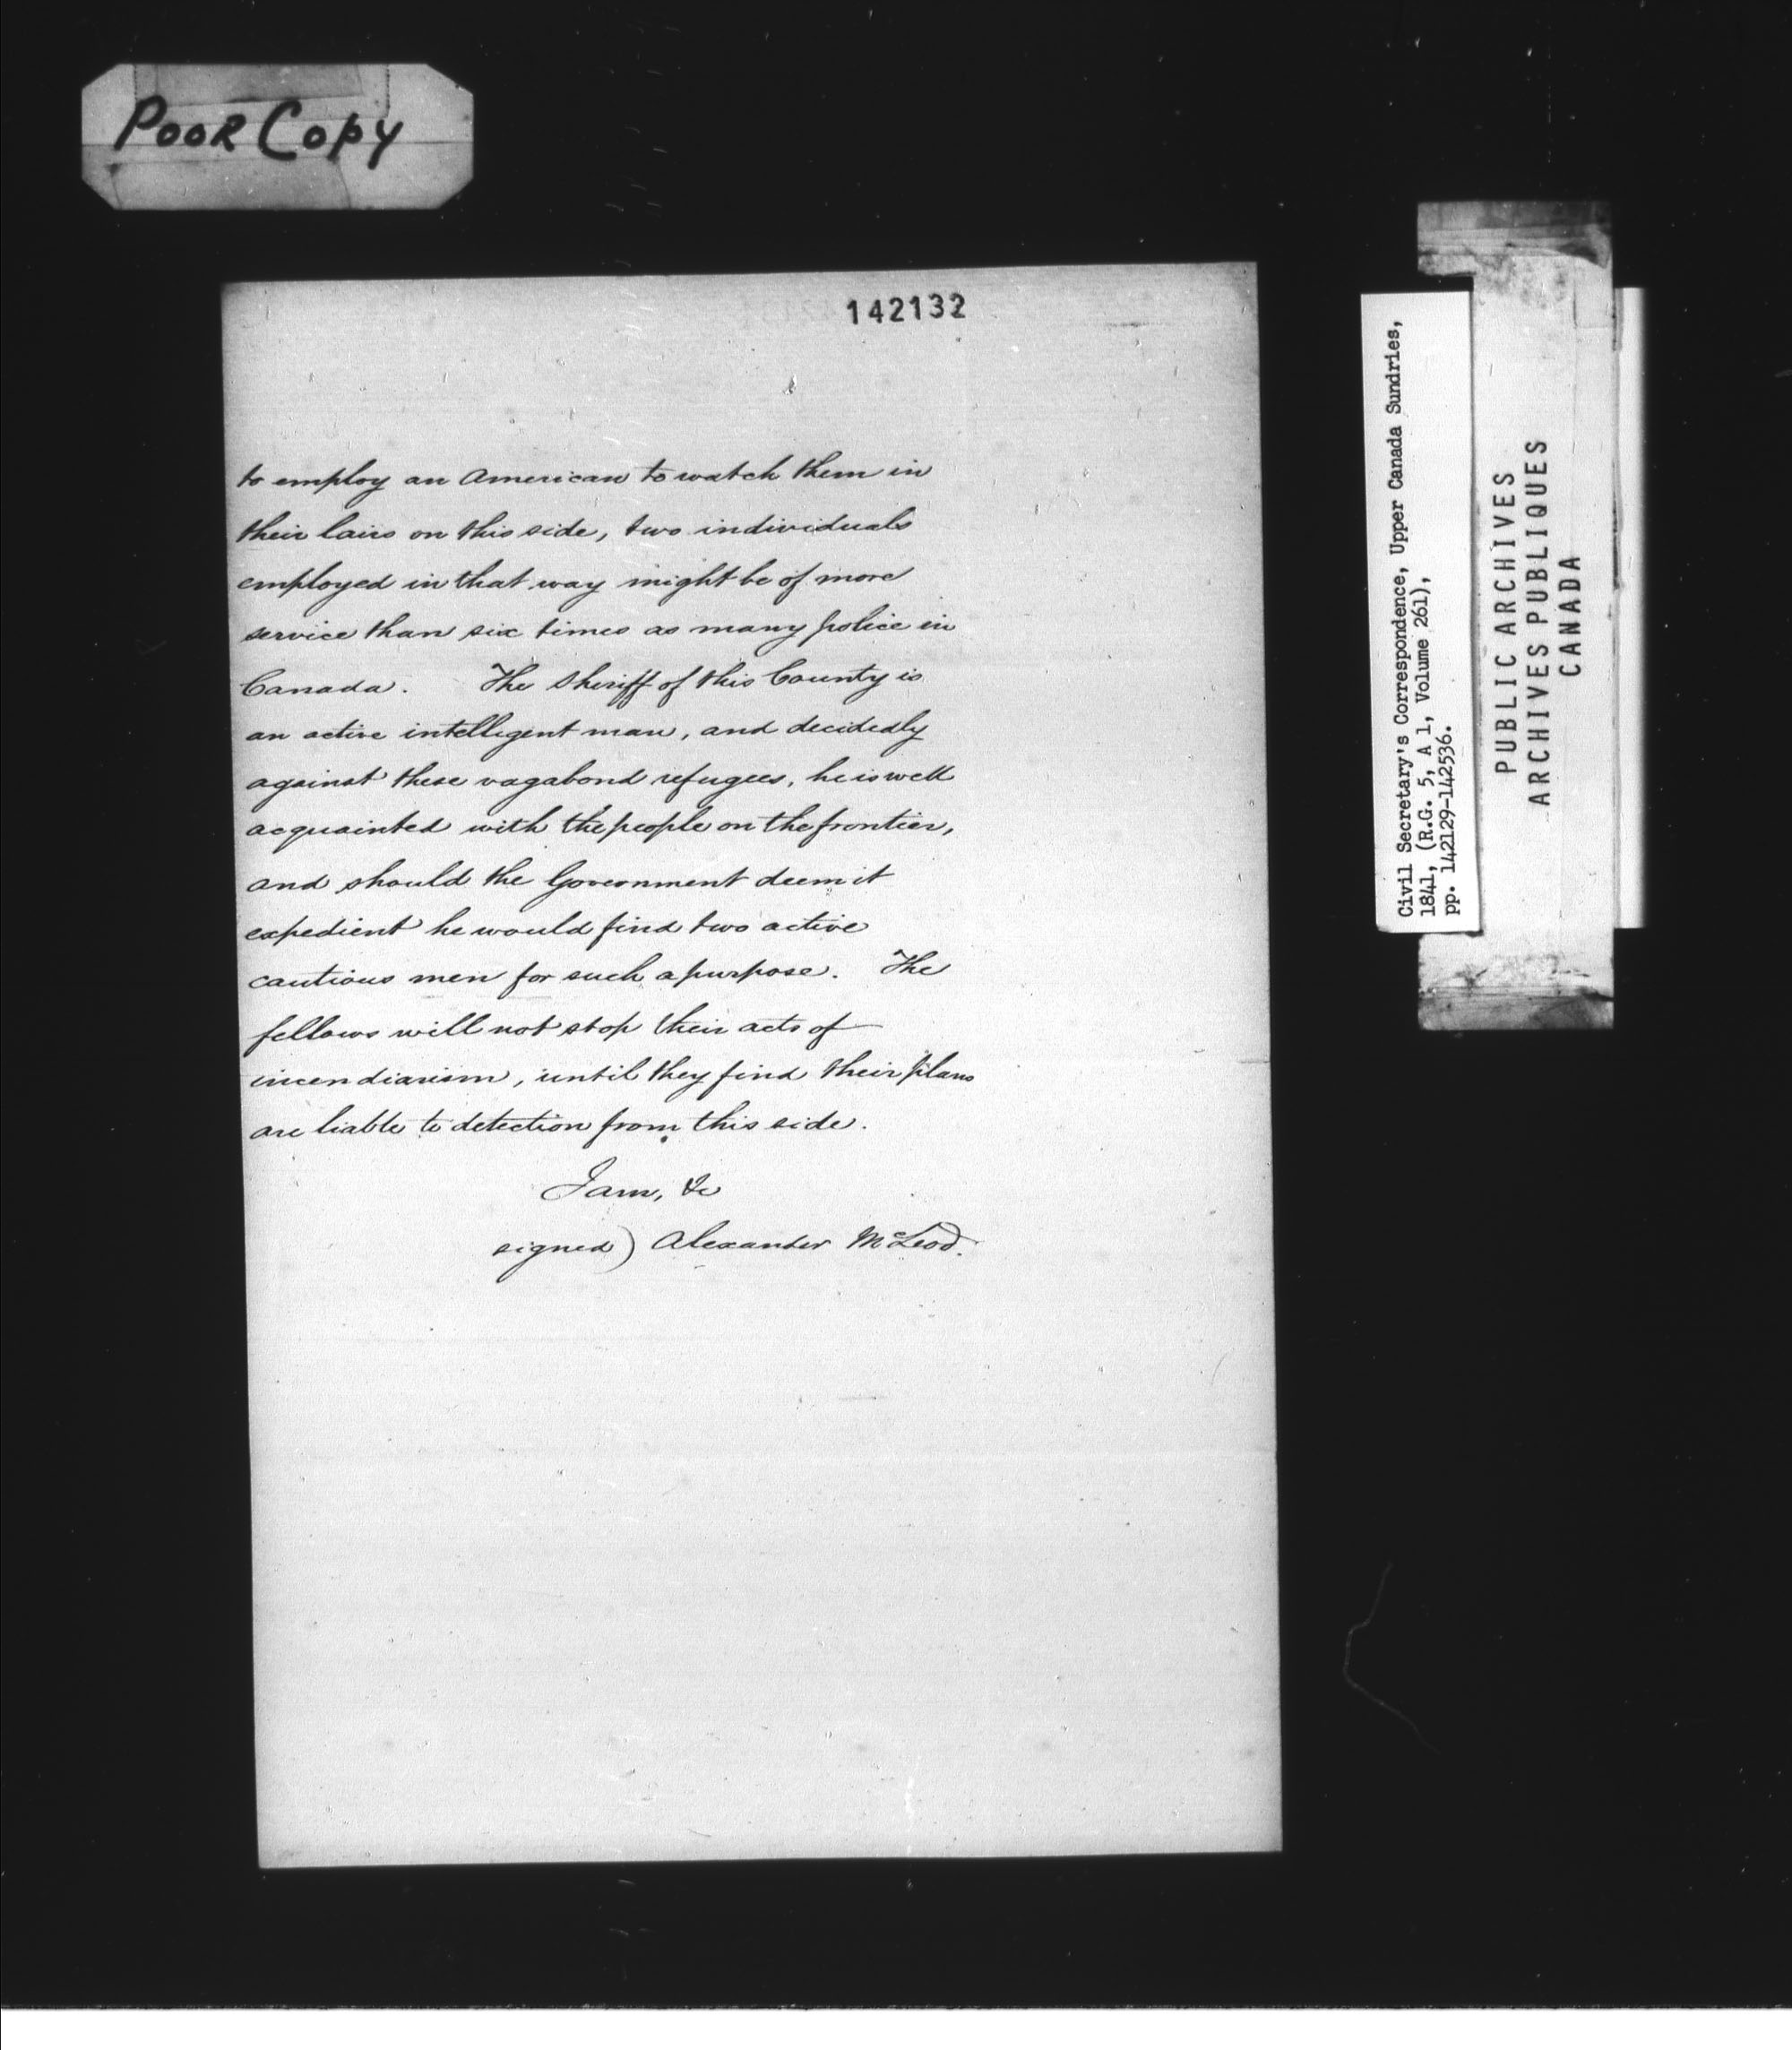 Poor Copy
142132
to employ an American to watch them in
their lairs on this side, two individuals
employed in that way might be of more
service than six times as many police in
Canada. The Sheriff of this County is
an active intelligent man, and decidedly
against these vagabond refugees, he is well
acquainted with the people on the frontier,
and should the Government deem it
expedient he would find two active
cautious men for such a purpose. The
fellows will not stop their acts of
incendiarism, until they find their plans
are liable to detection from this side.
I am, &c
signed) Alexander McLeod.
Civil Secretary's Correspondence, Upper Canada Sundries,
1841, (R.G. 5, A 1, Volume 261),
pp. 142129-142536.
PUBLIC ARCHIVES
ARCHIVES PUBLIQUES
CANADA